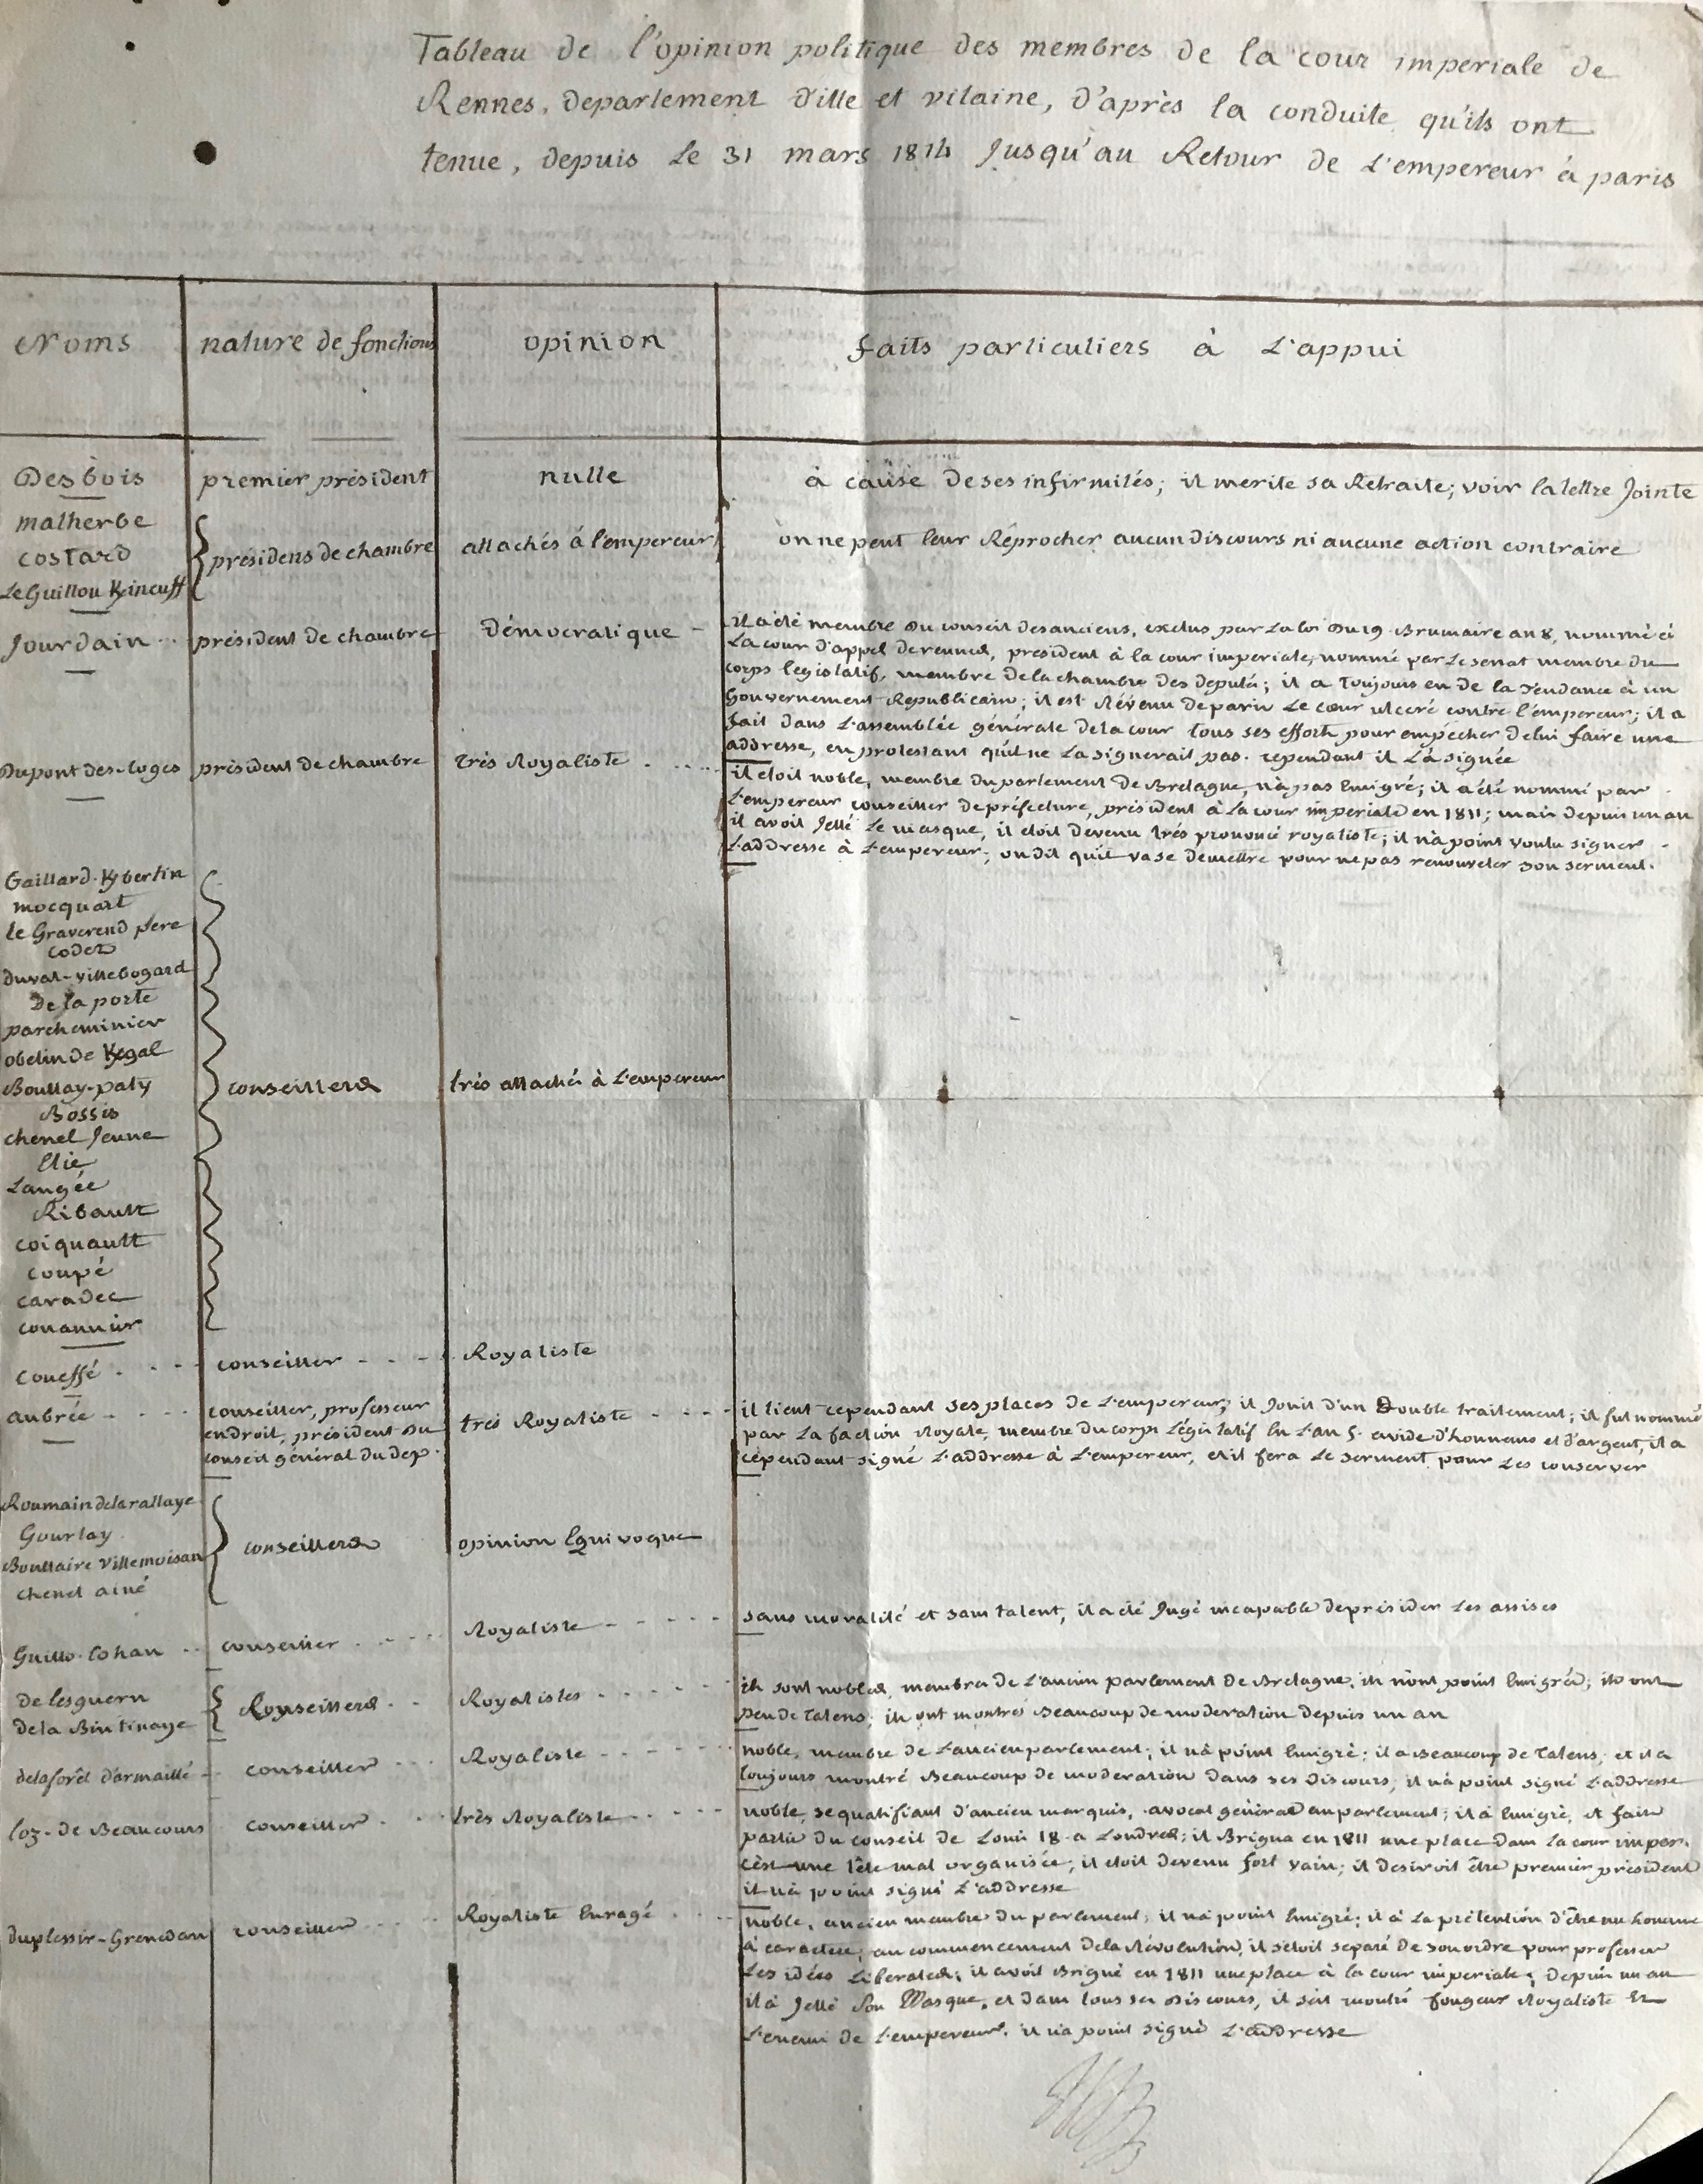 Tableau de l'opinion politique des membres de la cour imperiale de
Rennes, departement d'ille et vilaine, d'après la conduite qu'ils ont
tenue, depuis le 31 mars 1814 jusqu'au Retour de l'empereur à paris
Noms
nature de fonctions
opinion
faits particuliers à l'appui
Desbois
premier président
nulle
à cause de ses infirmités; il merite sa Retraite; voir la lettre jointe
malherbe
costard
Le Guillou Kincuff
présidens de chambre
attachés à l'empereur
on ne peut leur Réprocher aucun discours ni aucune action contraire
Jourdain
président de chambre
Démocratique
il a été membre du conseil des anciens, exclus par la loi du 19 Brumaire an 8, nommé à
La cour d'appel de rennes, president à la cour imperiale, nommé par le senat membre du
corps legislatif, membre de la chambre des deputés; il a toujours eu de la tendance à un
Gouvernement Republicain; il est Révenu de paris le cœur ulceré contre l'empereur; il a
fait dans l'assemblée générale de la cour tous ses efforts pour empêcher de lui faire une
addresse, en protestant qu'il ne la signerait pas. cependant il l'a signée
Dupont des-loges
président de chambre
très Royaliste
il etoit noble, membre du parlement de Bretagne, n'a pas Emigré; il a été nommé par
l'empereur conseiller de préfecture, président à la cour imperiale en 1811; mais depuis un an
il avoit jetté le masque, il etoit devenu très prononcé royaliste; il n'a point voulu signer
l'addresse à l'empereur; on dit qu'il va se demettre pour ne pas renouveler son serment.
Gaillard-Kbertin
mocquart
le Graverend pere
codet
duval-villebogard
De la porte
parcheminier
obelin de Kgal
Boullay-paty
Bossis
chenel Jeune
Elie
Langée
Ribault
coiquault
coupé
caradec
conannier
conseillers
très attachés à l'empereur
coueffé
conseiller
Royaliste
aubrée
conseiller, professeur
en droit, président du
conseil général du dep.
très Royaliste
il tient cependant ses places de l'empereur; il jouit d'un double traitement; il fut nommé
par la faction Royale, membre du corps législatif en l'an 5. avide d'honneurs et d'argent, il a
cependant signé l'addresse à l'empereur, et il fera le serment pour les conserver
Roumain de la rallaye
Gourlay
Boullaire villemoisan
chenel ainé
conseillers
opinion Equivoque
Guillo-lohan
conseiller
Royaliste
sans moralité et sans talent, il a été jugé incapable de présider les assises
de lesguern
de la Bintinaye
Conseillers
Royalistes
ils sont nobles, membres de l'ancien parlement de Bretagne, ils n'ont point Emigrés; ils ont
peu de talens; ils ont montrés beaucoup de moderation depuis un an
de la forêt d'armaillé
conseiller
Royaliste
noble, membre de l'ancien parlement; il n'a point Emigré; il a Beaucoup de talens, et il a
toujours montré Beaucoup de moderation dans ses discours, il n'a point signé l'addresse
loz-de Beaucours
conseiller
très Royaliste
noble, se qualifiant d'ancien marquis, avocat général au parlement; il a Emigré, et fait
partie du conseil de Louis 18 a Londres; il Brigua en 1811 une place dans la cour imper.
c'est une tête mal organisée, il etoit devenu fort vain; il desiroit être premier président
il n'a point signé l'addresse
duplessis-Grenedan
conseiller
Royaliste Enragé
noble, ancien membre du parlement, il n'a point Emigré; il a la prétention d'être un homme
à caractere; au commencement de la Révolution, il s'etoit separé de son ordre pour professer
les idées Liberales; il avoit Brigué en 1811 une place à la cour imperiale; depuis un an
il a jetté son Masque, et dans tous ses discours, il s'est montré fougeux Royaliste Et
l'ennemi de l'empereur. il n'a point signé l'addresse